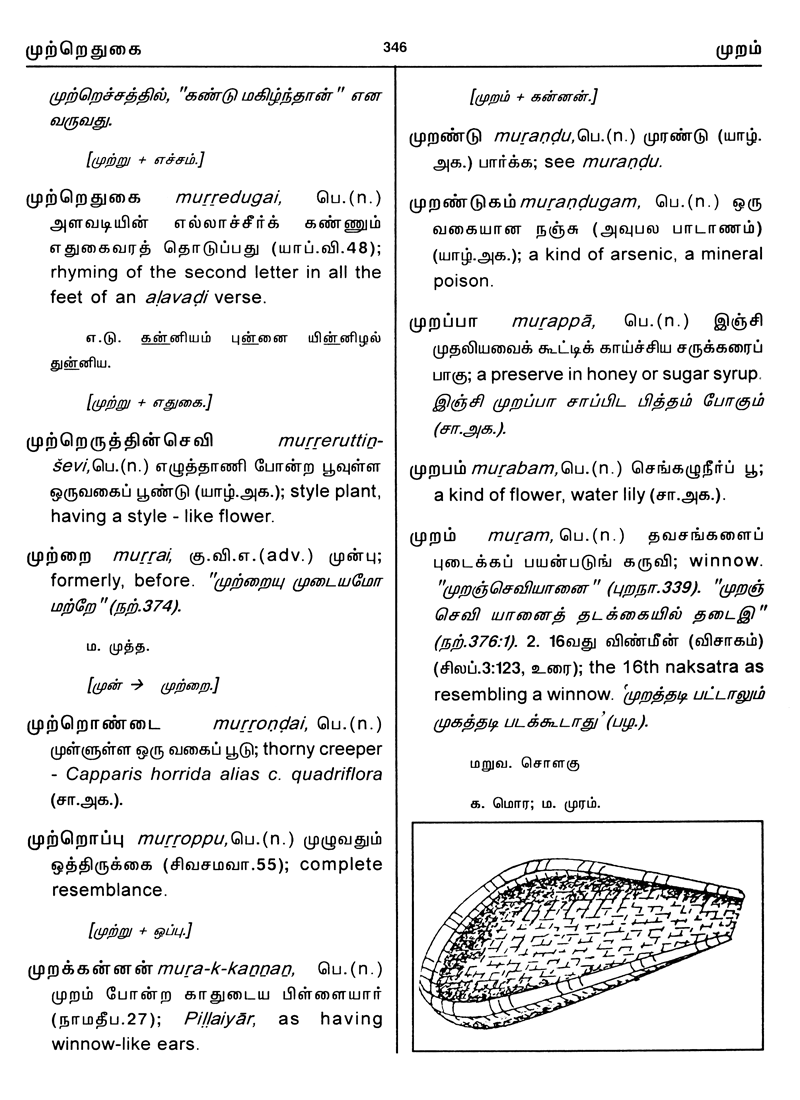 முற்றெதுகை 346 முறம்
முற்றெச்சத்தில், "கண்டு மகிழ்ந்தான்" என
வருவது.
[முற்று + எச்சம்.]
முற்றெதுகை muṟṟedugai, பெ.(n.)
அளவடியின் எல்லாச்சீர்க் கண்ணும்
எதுகைவரத் தொடுப்பது (யாப்.வி.48);
rhyming of the second letter in all the
feet of an aḷavaḍi verse.
எ.டு. கன்னியம் புன்னை யின்னிழல்
துன்னிய.
[முற்று + எதுகை.]
முற்றெருத்தின்செவி muṟṟeruttiṉ-
ševi,பெ.(n.) எழுத்தாணி போன்ற பூவுள்ள
ஒருவகைப் பூண்டு (யாழ்.அக.); style plant,
having a style - like flower.
முற்றை muṟṟai, கு.வி.எ.(adv.) முன்பு;
formerly, before. "முற்றையு முடையமோ
மற்றே" (நற்.374).
ம. முத்த.
[முன் → முற்றை.]
முற்றொண்டை muṟṟoṇḍai, பெ.(n.)
முள்ளுள்ள ஒரு வகைப் பூடு; thorny creeper
- Capparis horrida alias c. quadriflora
(சா.அக.).
முற்றொப்பு muṟṟoppu,பெ.(n.) முழுவதும்
ஒத்திருக்கை (சிவசமவா.55); complete
resemblance.
[முற்று + ஒப்பு.]
முறக்கன்னன் muṟa-k-kaṉṉaṉ, பெ.(n.)
முறம் போன்ற காதுடைய பிள்ளையார்
(நாமதீப.27); Piḷḷaiyār, as having
winnow-like ears.
[முறம் + கன்னன்.]
முறண்டு muṟaṇḍu,பெ.(n.) முரண்டு (யாழ்.
அக.) பார்க்க; see muraṇḍu.
முறண்டுகம் muṟaṇḍugam, பெ.(n.) ஒரு
வகையான நஞ்சு (அவுபல பாடாணம்)
(யாழ்.அக.); a kind of arsenic, a mineral
poison.
முறப்பா muṟappā, பெ.(n.) இஞ்சி
முதலியவைக் கூட்டிக் காய்ச்சிய சருக்கரைப்
பாகு; a preserve in honey or sugar syrup.
இஞ்சி முறப்பா சாப்பிட பித்தம் போகும்
(சா.அக.).
முறபம் muṟabam,பெ.(n.) செங்கழுநீர்ப் பூ;
a kind of flower, water lily (சா.அக.).
முறம் muṟam, பெ.(n.) தவசங்களைப்
புடைக்கப் பயன்படுங் கருவி; winnow.
"முறஞ்செவியானை" (புறநா.339). "முறஞ்
செவி யானைத் தடக்கையில் தடைஇ"
(நற்.376:1). 2. 16வது விண்மீன் (விசாகம்)
(சிலப்.3:123, உரை); the 16th naksatra as
resembling a winnow. 'முறத்தடி பட்டாலும்
முகத்தடி படக்கூடாது' (பழ.).
மறுவ. சொளகு
க. மொர; ம. முரம்.